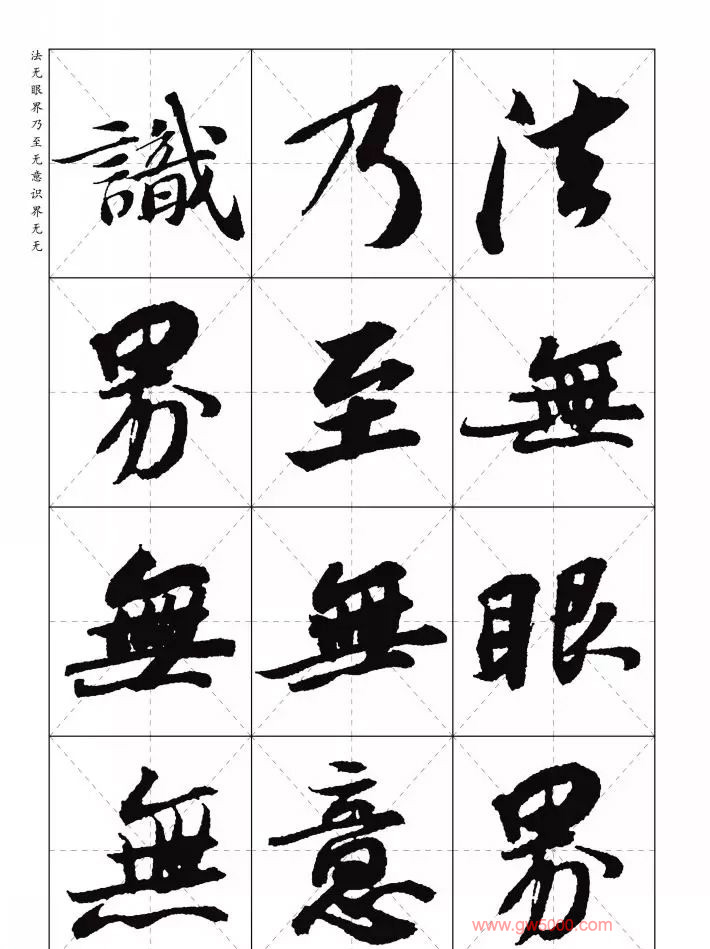 法无眼界乃至无意识界无无
法無眼界
乃至無意
識界無無
www.gw5000.com